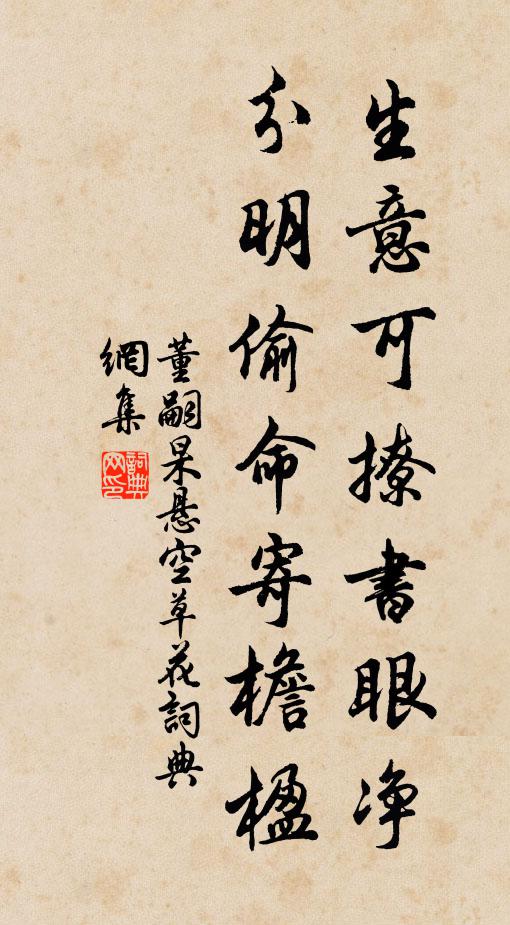 生意可撩書眼净
分明偷命寄檐楹
董嗣杲悬空草花詞典
網集
詞典网印